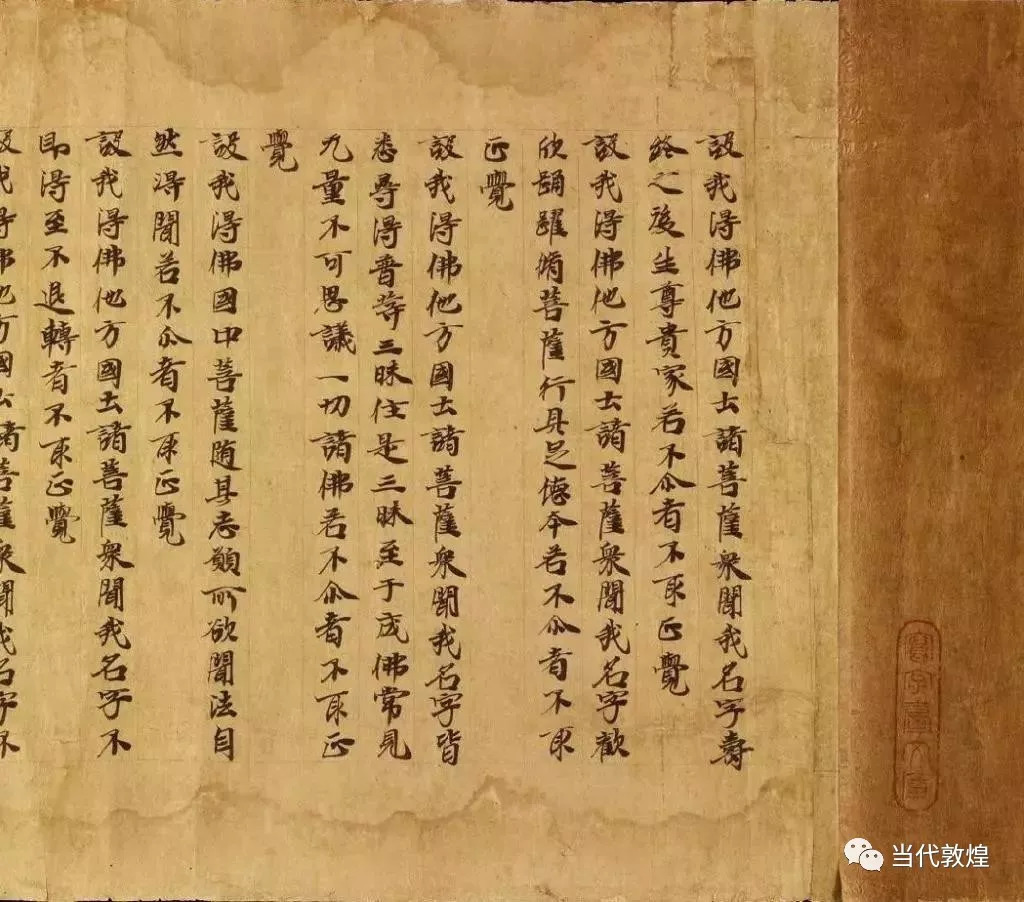 設我得佛他方國土諸菩薩衆聞我名字壽
終之後生尊貴家若不尒者不取正覺
設我得佛他方國土諸菩薩衆聞我名字歡
欣踊躍脩菩薩行具足德本若不尒者不取
正覺
設我得佛他方國土諸菩薩衆聞我名字皆
悉尋得普等三昧住是三昧至于成佛常見
无量不可思議一切諸佛若不尒者不取正
覺
設我得佛國中菩薩随其志願所欲聞法自
然得聞若不尒者不取正覺
設我得佛他方國土諸菩薩衆聞我名字不
即得至不退轉者不取正覺
設我得佛他方國土諸菩薩衆聞我名字不
当代敦煌